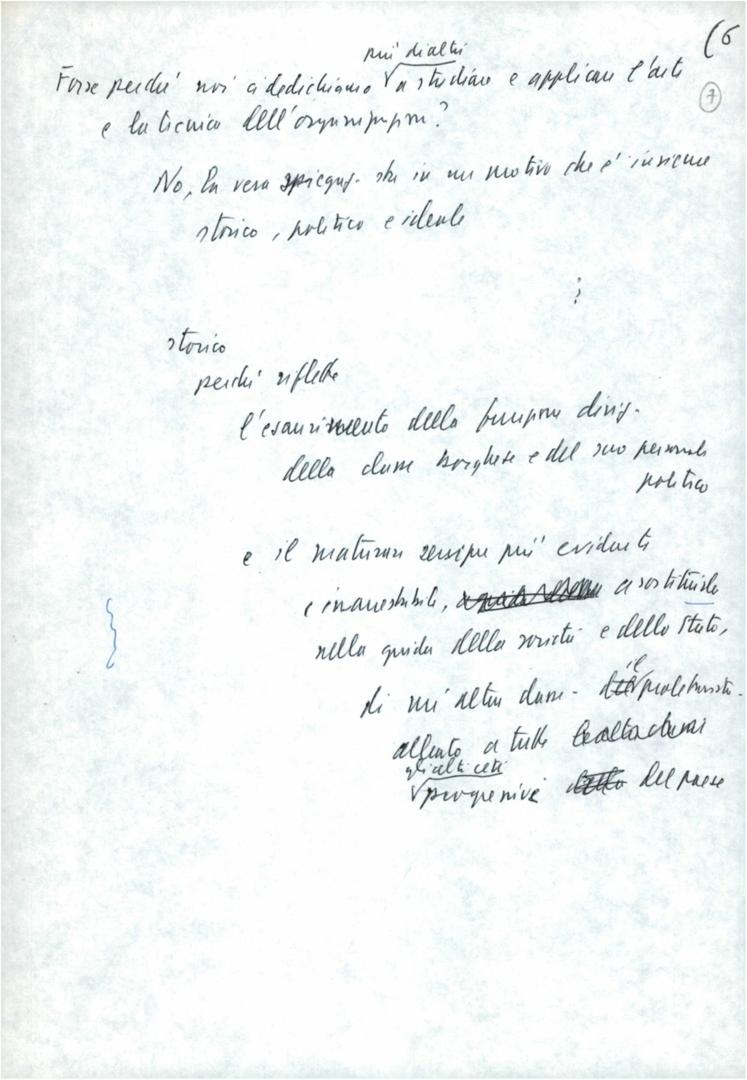 (6
7
più di altri
Forse perché noi ci dedichiamo a studiare e applicare l'arte
e la tecnica dell'organizzazione?
No, la vera spiegaz. sta in un motivo che è insieme
storico, politico e ideale
?
storico
perché riflette
l'esaurimento della funzione dirig.
della classe borghese e del suo personale
politico
e il maturare sempre più evidente
e inarrestabile, a sostituirla
nella guida della società e dello Stato,
di un'altra classe - il proletariato -
alleato a tutte le altre classi
gli altri ceti
progressivi del paese